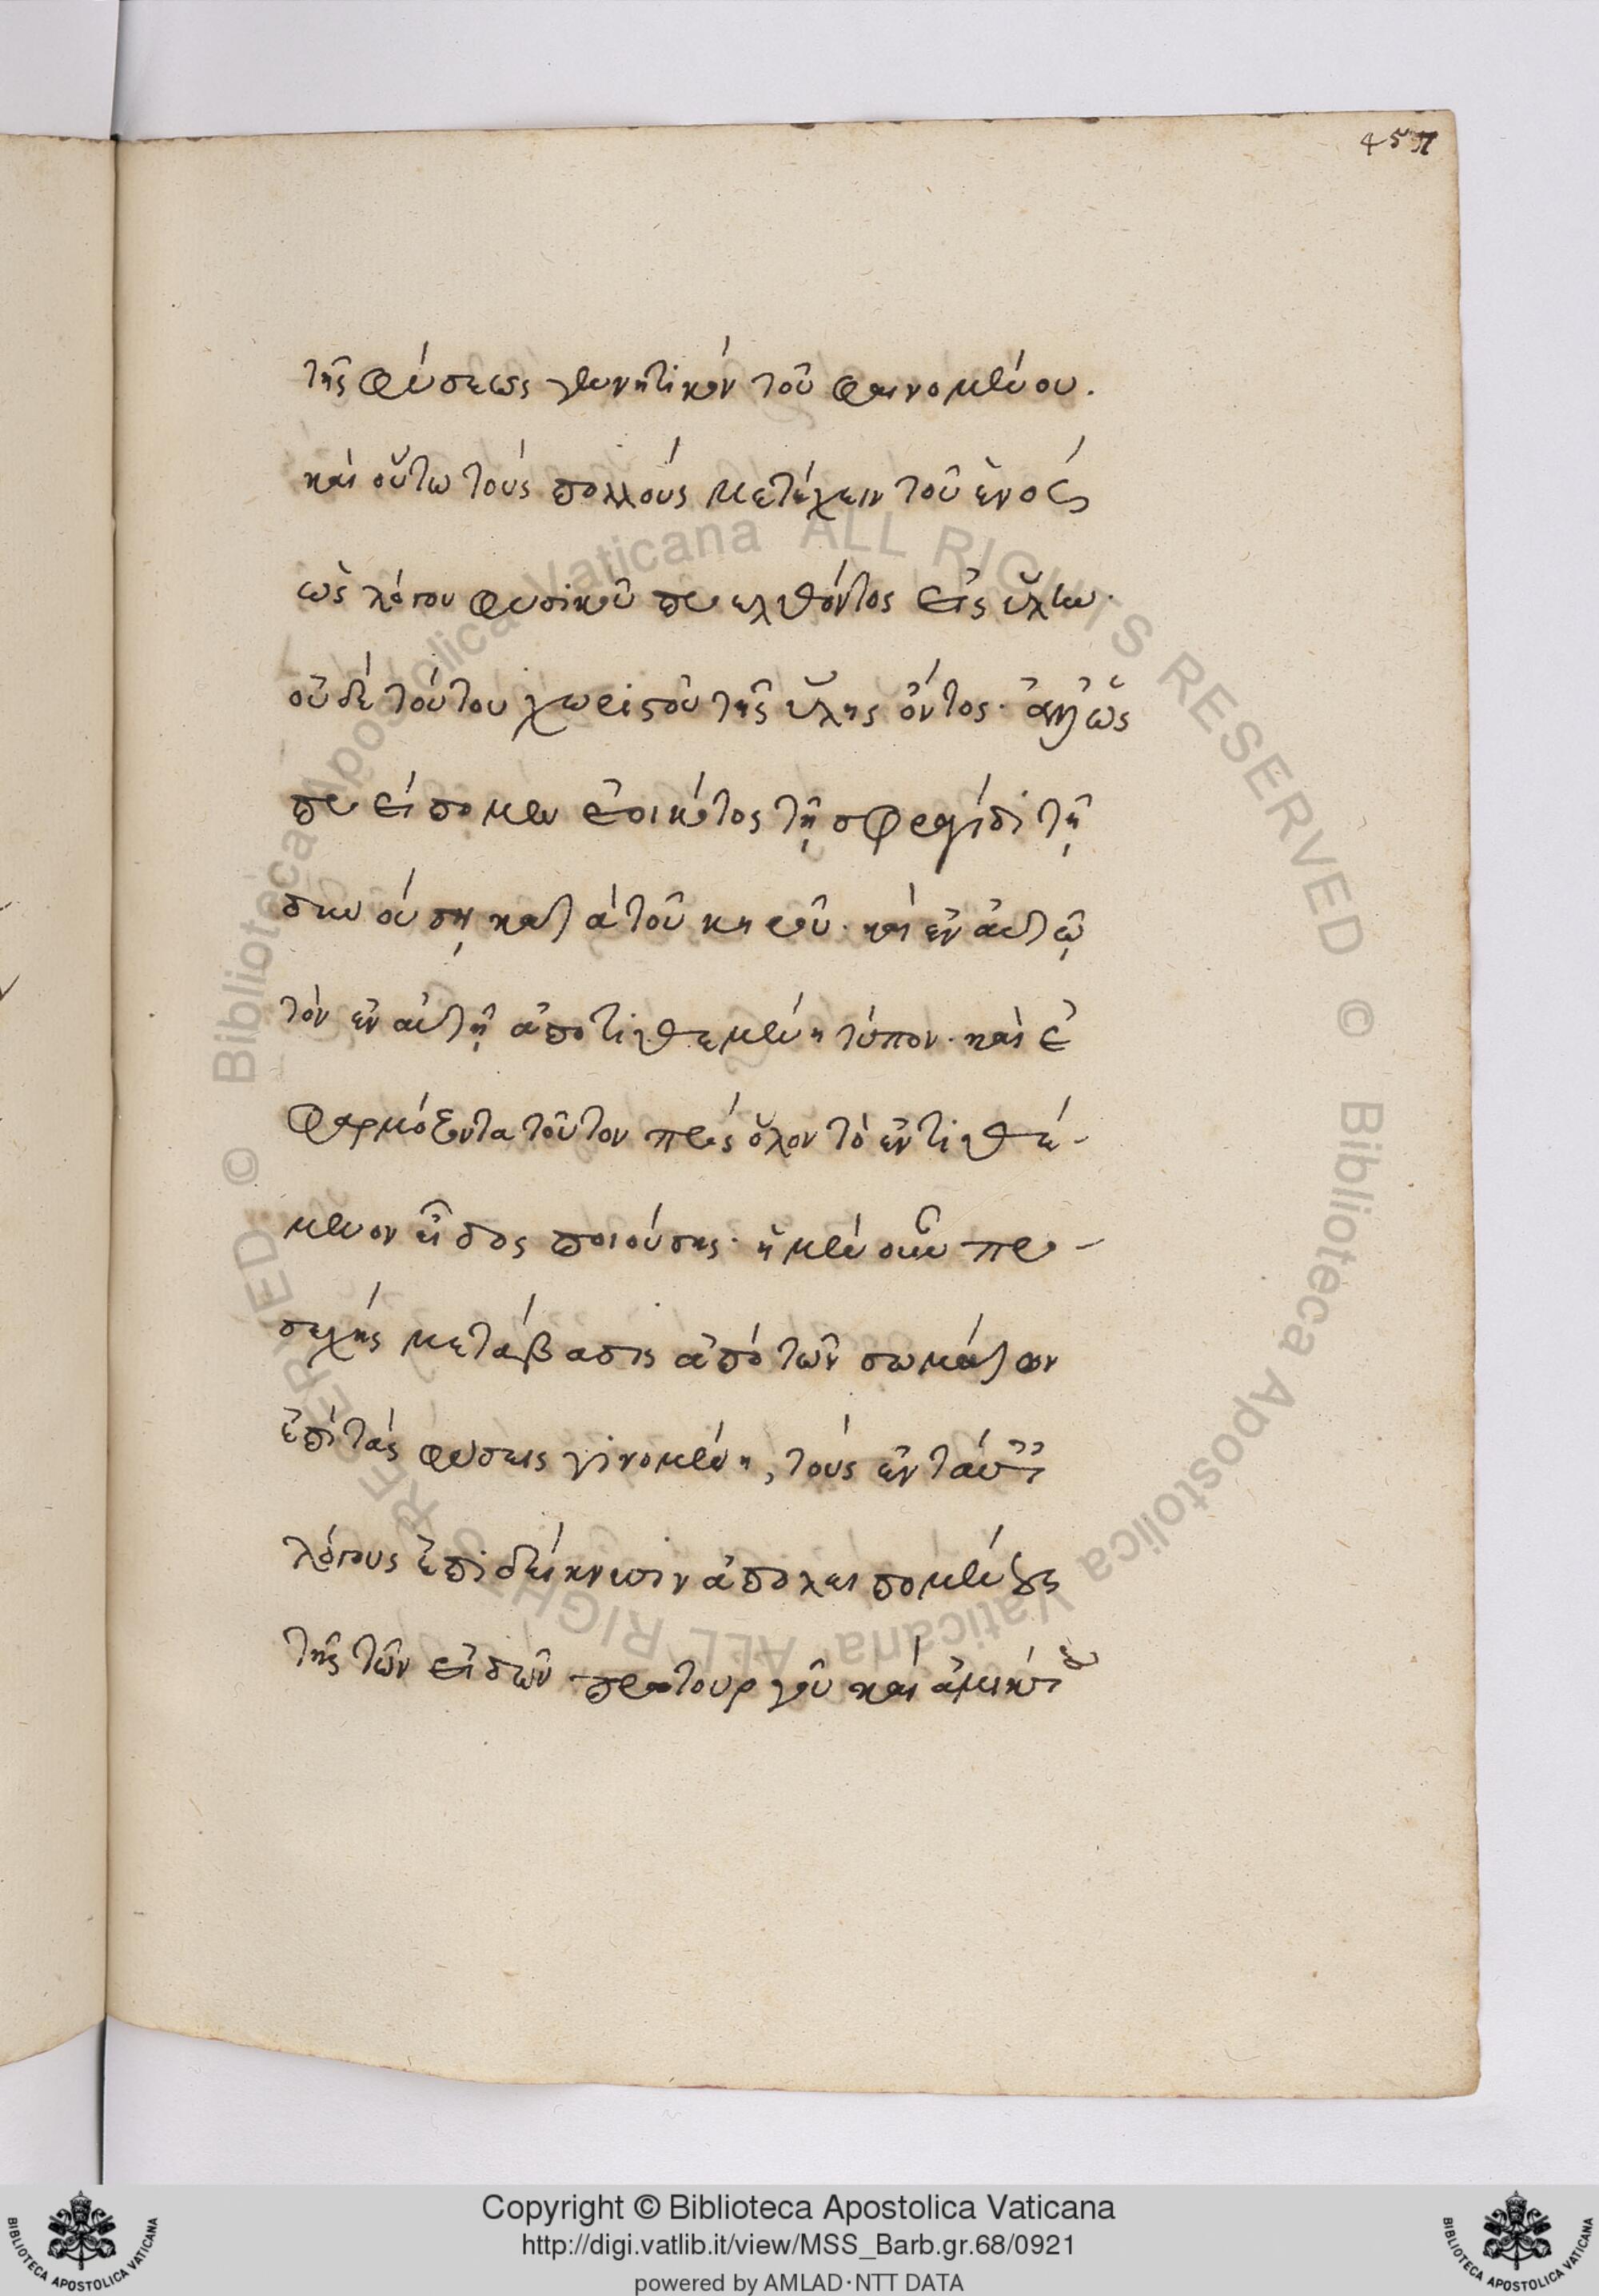 457
τῆς φύσεως γεννητικὸν τοῦ φαινομένου.
καὶ οὕτω τοὺς πολλοὺς μετέχειν τοῦ ἑνὸς
ὡς λόγου φυσικοῦ προελθόντος εἰς ὕλην.
οὐδὲ τούτου χωριστοῦ τῆς ὕλης ὄντος. ἀλλ' ὡς
προείπομεν ἐοικότος τῇ σφραγίδι τῇ
δυούσῃ κατὰ τοῦ κηροῦ. καὶ ἐν αὐτῷ
τὸν ἐν αὐτῇ ἀποτιθεμένη τύπον. καὶ ἐ
φαρμόζοντα τοῦτον πρὸς ὅλον τὸ ἐντιθέ-
μενον εἶδος ποιούσης. ἡ μὲν οὖν προ-
σεχὴς μετάβασις ἀπὸ τῶν σωμάτων
ἐπὶ τὰς φύσεις γινομένη, τοὺς ἐν ταύταις
λόγους ἐπιδείκνυσιν ἀπολειπομένους
τῆς τῶν εἰδῶν πρωτουργοῦ καὶ ἀμικτ
Copyright © Biblioteca Apostolica Vaticana
http://digi.vatlib.it/view/MSS_Barb.gr.68/0921
powered by AMLAD·NTT DATA
BIBLIOTECA APOSTOLICA VATICANA
BIBLIOTECA APOSTOLICA VATICANA
© Biblioteca Apostolica Vaticana ALL RIGHTS RESERVED
© Biblioteca Apostolica Vaticana ALL RIGHTS RESERVED